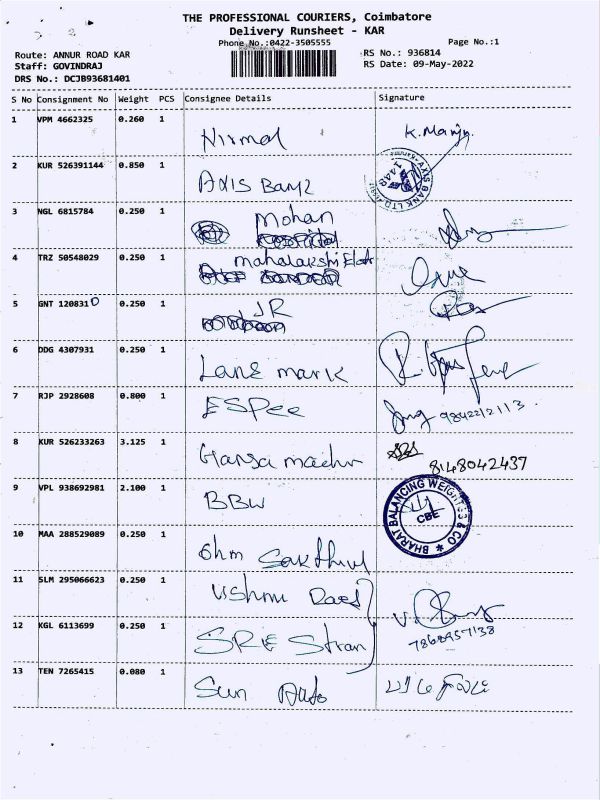 THE PROFESSIONAL COURIERS, Coimbatore
Delivery Runsheet - KAR
Phone No.:0422-3505555 Page No.:1
Route: ANNUR ROAD KAR RS No.: 936814
Staff: GOVINDRAJ RS Date: 09-May-2022
DRS No.: DCJB93681401
S No Consignment No Weight PCS Consignee Details Signature
1 VPM 4662325 0.260 1 Nirmal K. Manju
2 KUR 526391144 0.850 1 AXIS Bank AXIS BANK LTD
3 NGL 6815784 0.250 1 Mohan
4 TRZ 50548029 0.250 1 mahalakshi
5 GNT 120831 0.250 1 JR
6 DDG 4307931 0.250 1 Lane mark
7 RJP 2928608 0.800 1 ESPee 9842212113
8 KUR 526233263 3.125 1 8148042437
9 VPL 938692981 2.100 1 BBW BHARAT BALANCING WEIGHTSS & CO CBE
10 MAA 288529089 0.250 1 Ohm Sakthivel
11 SLM 295066623 0.250 1
12 KGL 6113699 0.250 1 SRE 7868957138
13 TEN 7265415 0.080 1 Sun Auto